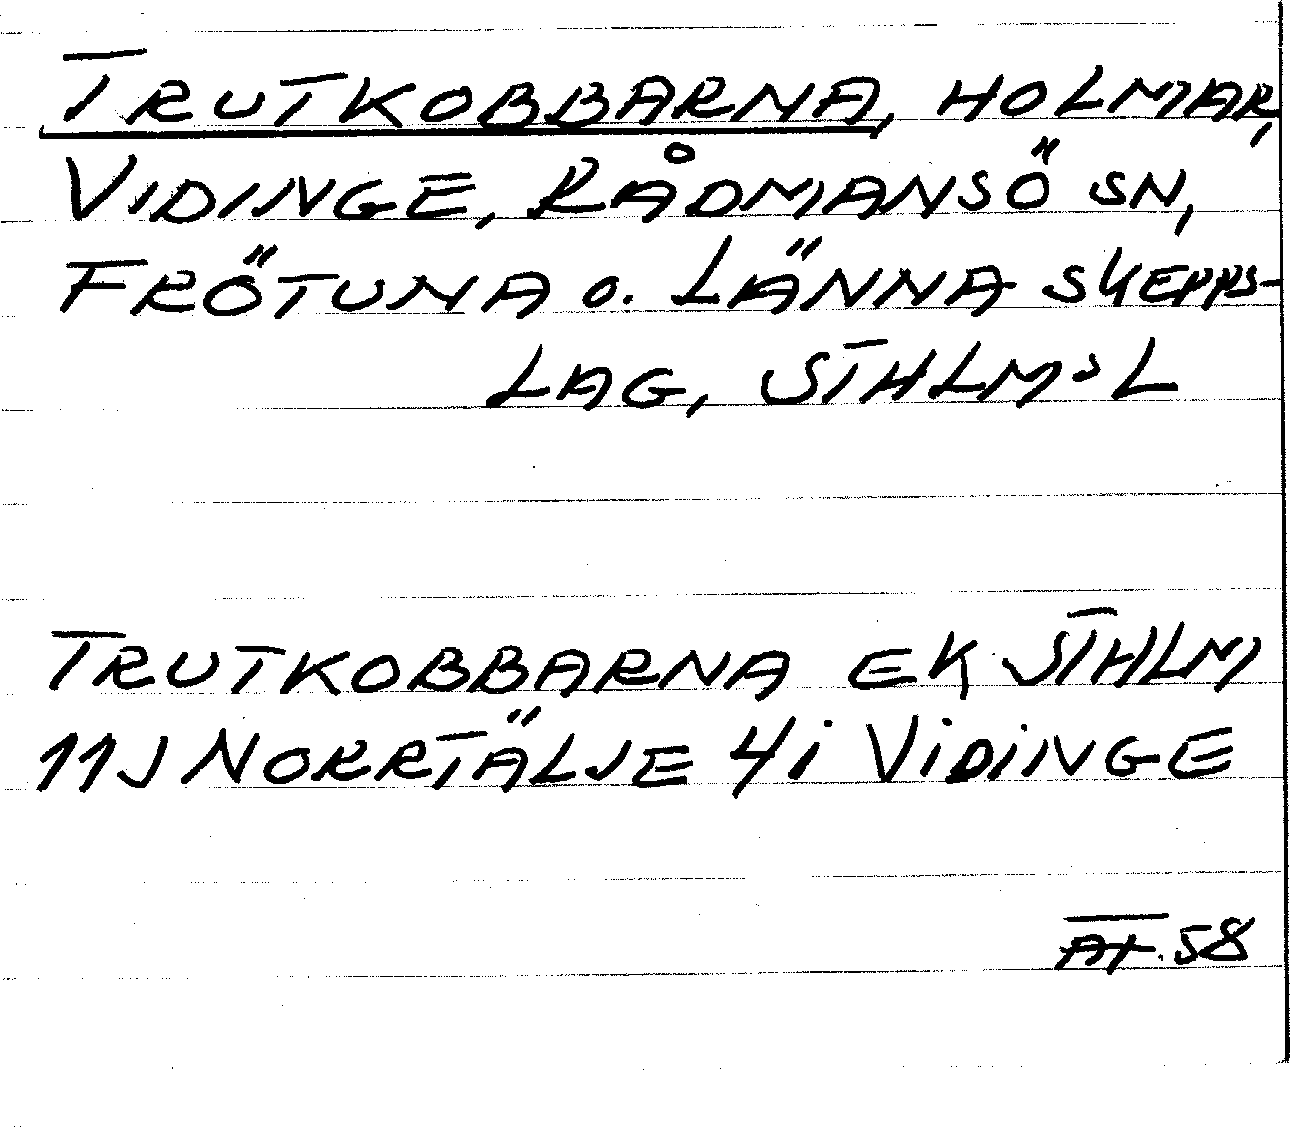 TRUTKOBBARNA, HOLMAR,
VIDINGE, RÅDMANSÖ SN,
FRÖTUNA o. LÄNNA SKEPPS-
LAG, STHLMSL
TRUTKOBBARNA EK STHLM
11J NORRTÄLJE 4i VIDINGE
58